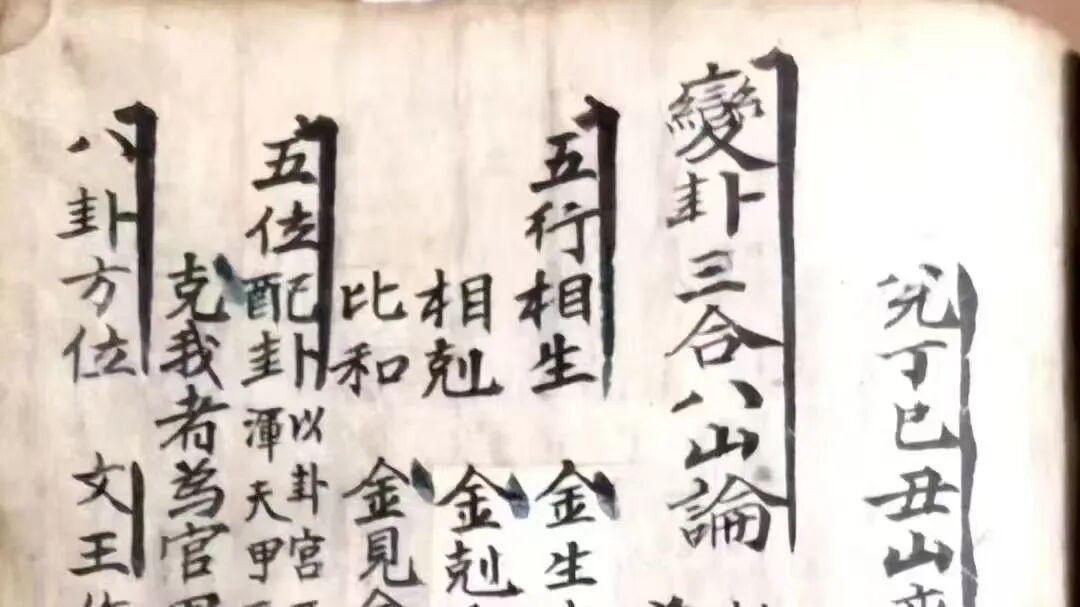 兊丁巳丑山
變卦三合八山論
五行相生 金生
相剋 金剋
比和 金見
五位配卦 以卦宮 渾天甲
克我者為官
八卦方位 文王